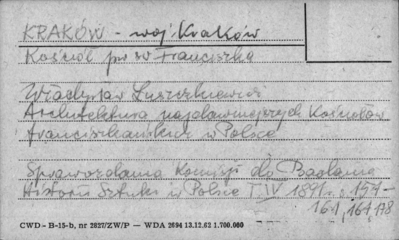 KRAKÓW - woj. Kraków
Kościół pw św Franciszka
Władysław Łuszczkiewicz
Architektura najdawniejszych Kościołów
franciszkańskich w Polsce
Sprawozdania Komisji do Badania
Historii Sztuki w Polsce T. IV 1891 s.
161, 164, 178
CWD - B-15-b, nr 2827/ZW/P — WDA 2694 13.12.62 1.700.000